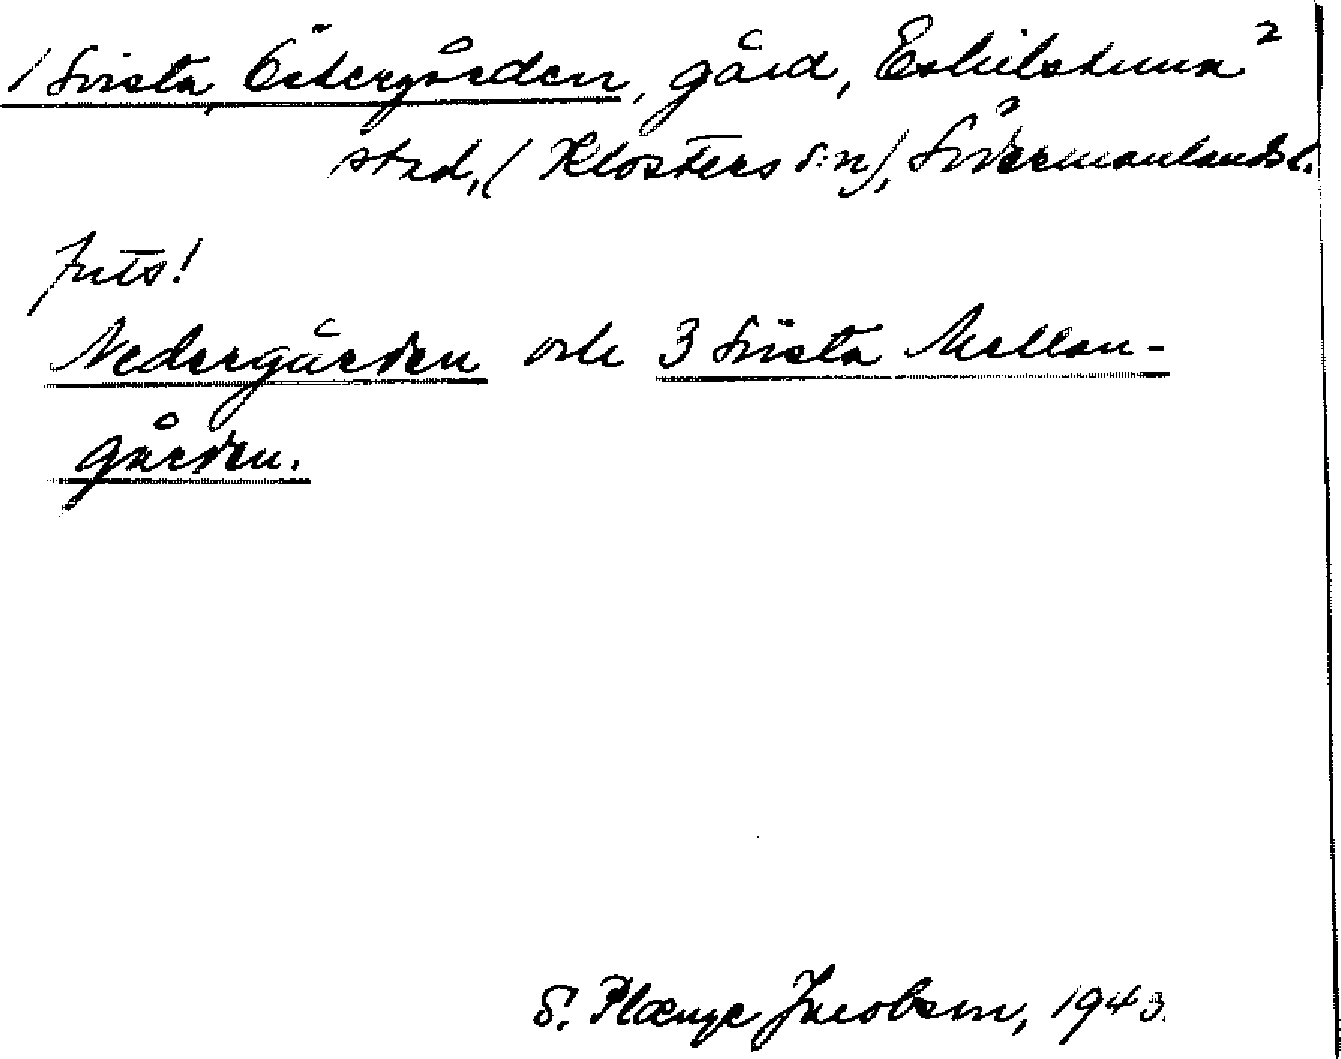 1 Svista, Östergården, gård, Eskilstuna 2
stad, (Klosters s:n), Södermanlands l.
Nedergården och 3 Svista Mellan-
gården.
S. Plænge Jacobson, 1943.